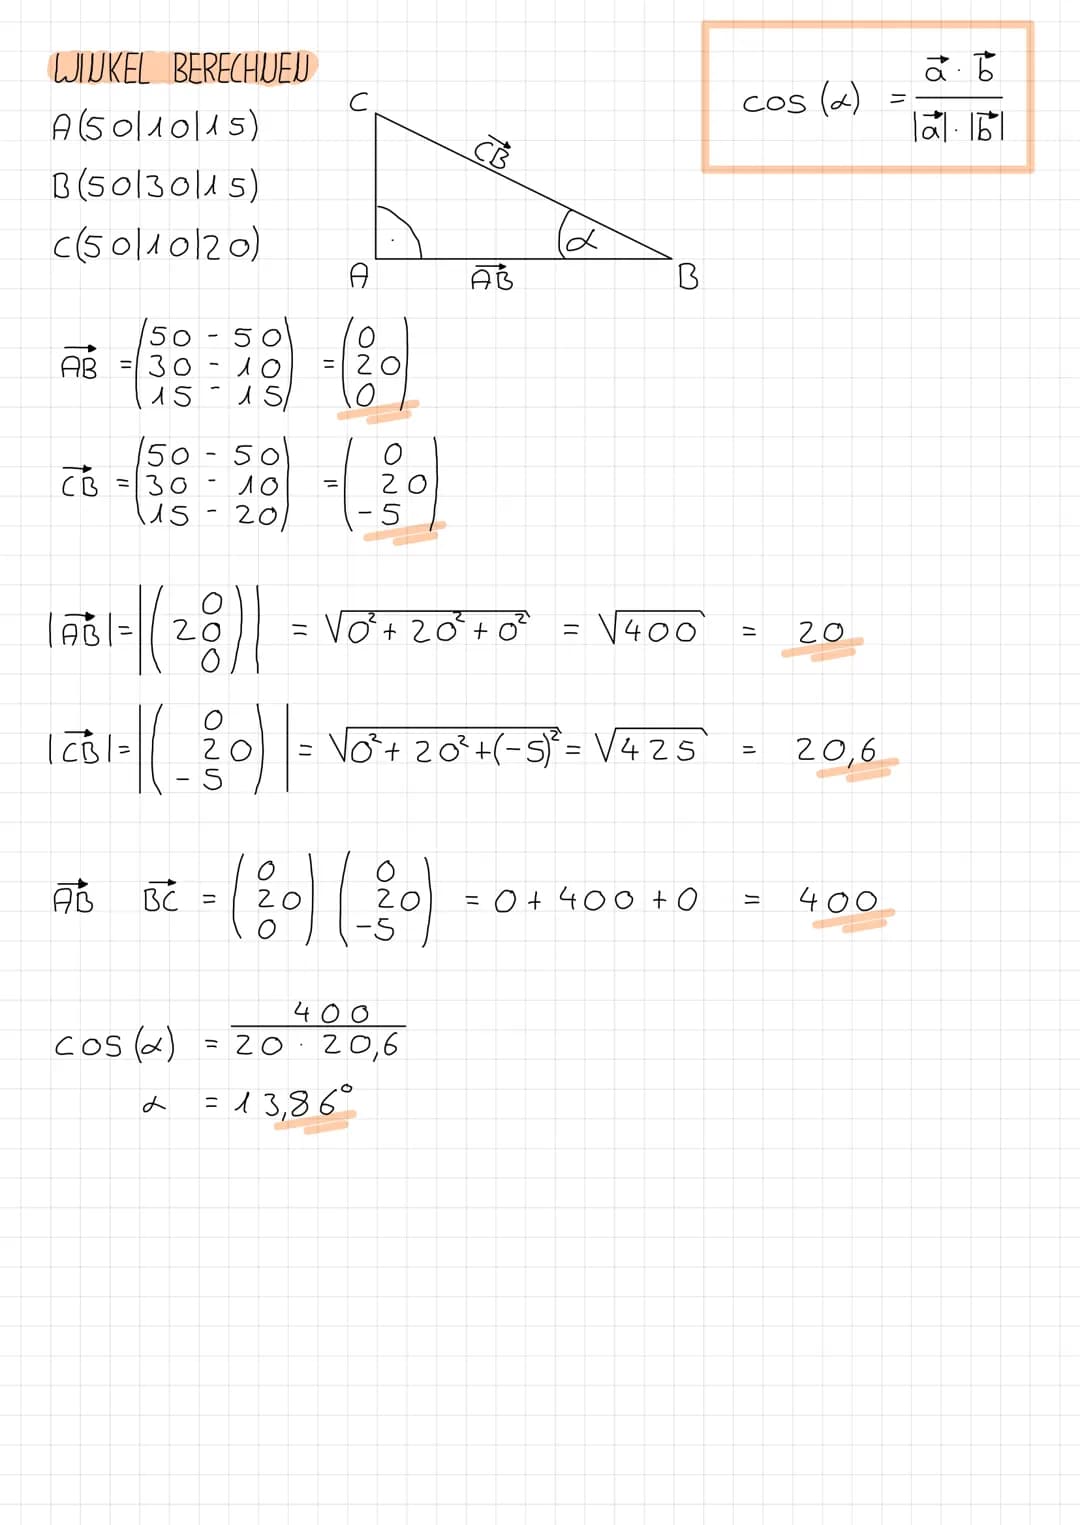 WINKEL BERECHNEN
A(50|10|15)
B(50|30|15)
C(50|10|20)
C
CB
α
A
AB
B
cos (α) = a · b / |a| · |b|
AB = (50 - 50 30 - 10 15 - 15) = (0 20 0)
CB = (50 - 50 30 - 10 15 - 20) = (0 20 -5)
|AB| = |(0 20 0)| = √0² + 20² + 0² = √400 = 20
|CB| = |(0 20 -5)| = √0² + 20² + (-5)² = √425 = 20,6
AB BC = (0 20 0) (0 20 -5) = 0 + 400 + 0 = 400
cos (α) = 400 / 20 · 20,6
α = 13,86°